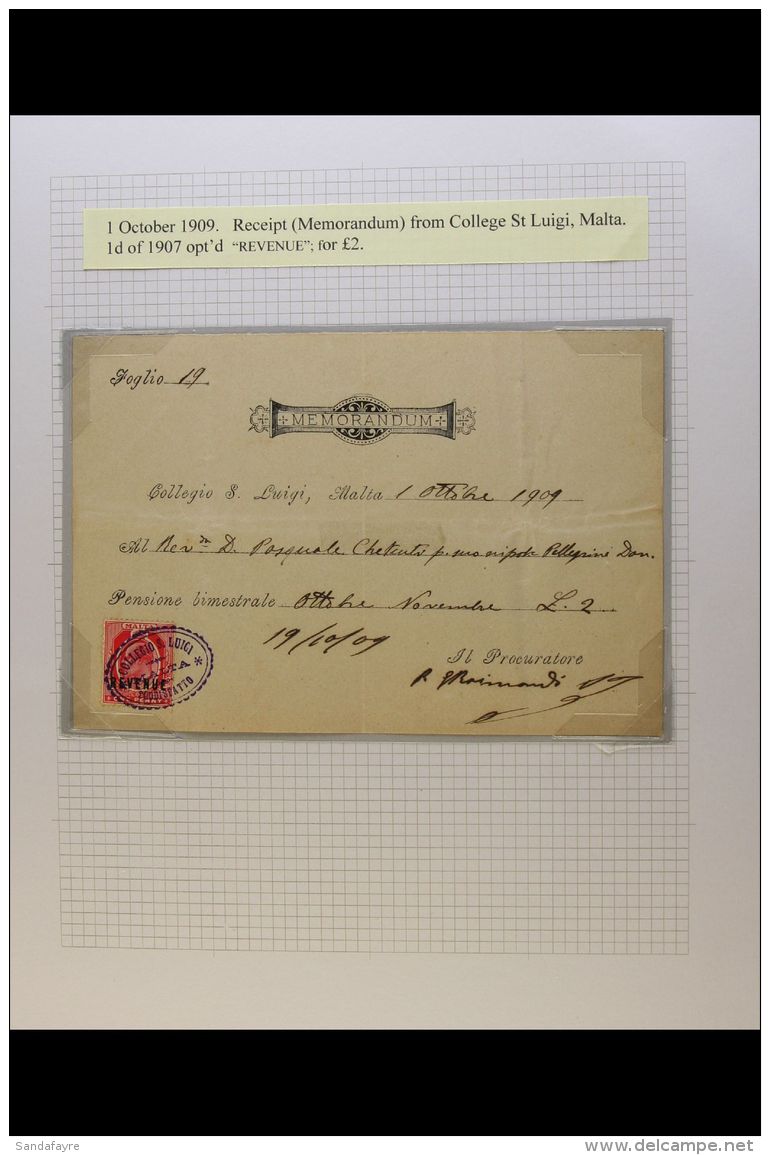 1 October 1909. Receipt (Memorandum) from College St Luigi, Malta.
1d of 1907 opt'd "REVENUE"; for £2.
Foglio 19
MEMORANDUM
Collegio S. Luigi, Malta 1 Ottobre 1909
Al Rev do D. Pasquale Pellegrini Dom.
Pensione bimestrale Ottobre Novembre L. 2
19/10/09
Il Procuratore
MALTA
COLLEGIO S. LUIGI
MALTA
REVENUE
PENNY
Sandafayre
delcampe.net